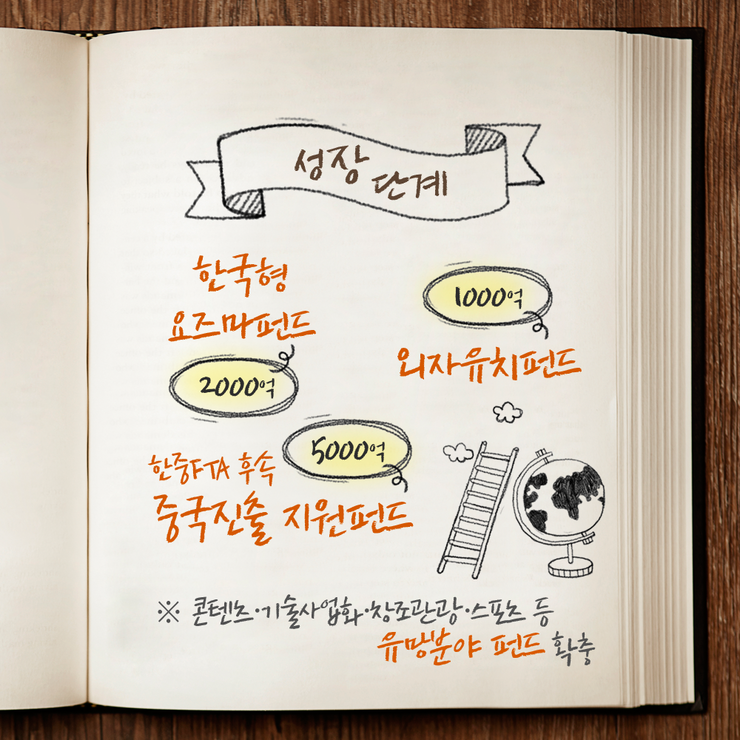 성장 단계
한국형
요즈마펀드
2000억
1000억
외자유치펀드
5000억
한중FTA 후속
중국진출 지원펀드
※ 콘텐츠·기술사업화·창조관광·스포츠 등
유망분야 펀드 확충